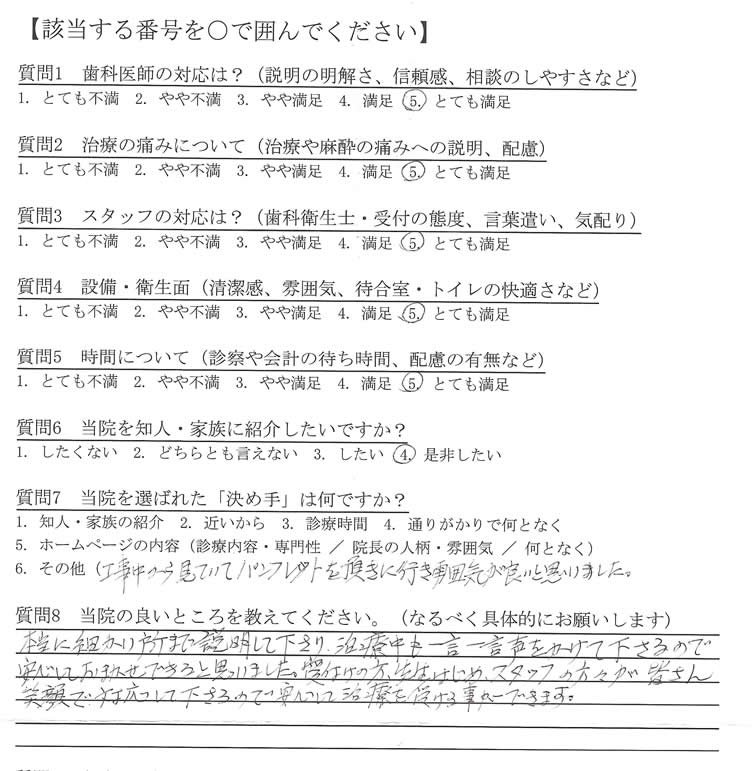 【該当する番号を○で囲んでください】
質問1 歯科医師の対応は？（説明の明解さ、信頼感、相談のしやすさなど）
1. とても不満 2. やや不満 3. やや満足 4. 満足 5. とても満足
質問2 治療の痛みについて（治療や麻酔の痛みへの説明、配慮）
1. とても不満 2. やや不満 3. やや満足 4. 満足 5. とても満足
質問3 スタッフの対応は？（歯科衛生士・受付の態度、言葉遣い、気配り）
1. とても不満 2. やや不満 3. やや満足 4. 満足 5. とても満足
質問4 設備・衛生面（清潔感、雰囲気、待合室・トイレの快適さなど）
1. とても不満 2. やや不満 3. やや満足 4. 満足 5. とても満足
質問5 時間について（診察や会計の待ち時間、配慮の有無など）
1. とても不満 2. やや不満 3. やや満足 4. 満足 5. とても満足
質問6 当院を知人・家族に紹介したいですか？
1. したくない 2. どちらとも言えない 3. したい 4. 是非したい
質問7 当院を選ばれた「決め手」は何ですか？
1. 知人・家族の紹介 2. 近いから 3. 診療時間 4. 通りがかりで何となく
5. ホームページの内容（診療内容・専門性 ／ 院長の人柄・雰囲気 ／ 何となく）
6. その他（工事中から見ていてパンフレットを頂きに行き雰囲気が良いと思いました。
質問8 当院の良いところを教えてください。（なるべく具体的にお願いします）
本当に細かい所まで説明して下さり、治療中も一言一言声をかけて下さるので
安心しておまかせできると思いました。受付けの方、先生はじめ、スタッフの方々が皆さん
笑顔で対応して下さるので安心して治療を受ける事ができます。